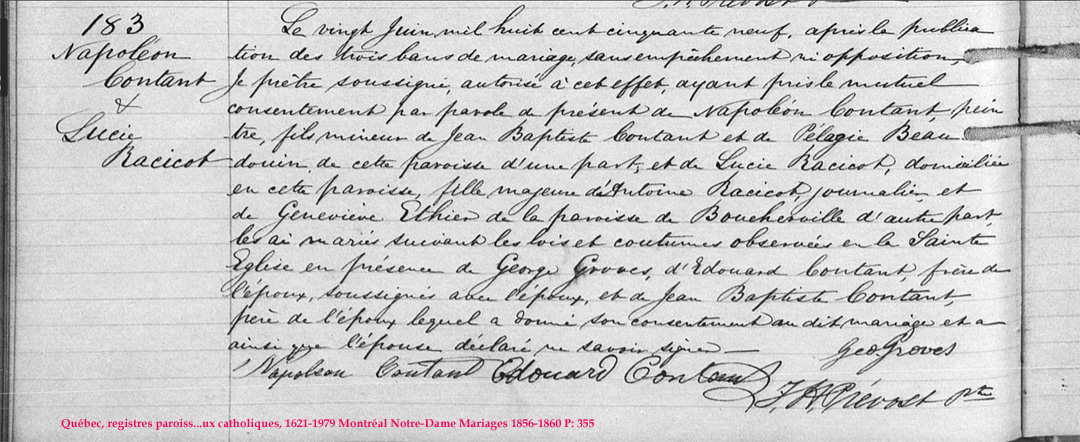 183
Napoléon
Contant
&
Lucie
Racicot
Le vingt Juin, mil huit cent cinquante neuf, après la publica
tion des trois bans de mariage, sans empêchement ni opposition,
Je prêtre soussigné, autorisé à cet effet, ayant pris le mutuel
consentement par parole de présent de Napoléon Contant, pein
tre, fils mineur de Jean Baptiste Contant et de Pélagie Beau
douin, de cette paroisse d'une part, et de Lucie Racicot, domiciliée
en cette paroisse, fille majeure d'Antoine Racicot, journalier et
de Geneviève Ethier de la paroisse de Boucherville d'autre part
les ai mariés suivant les lois et coutumes observées en la Sainte
Eglise en présence de George Groves, d'Edouard Contant, frère de
l'époux, soussignés avec l'époux, et de Jean Baptiste Contant
père de l'époux lequel a donné son consentement au dit mariage et a
ainsi que l'épouse déclaré ne savoir signer —
Geo Groves
Napoleon Contant Edouard Contant
Prévost Ptre
Québec, registres paroiss...ux catholiques, 1621-1979 Montréal Notre-Dame Mariages 1856-1860 P: 355